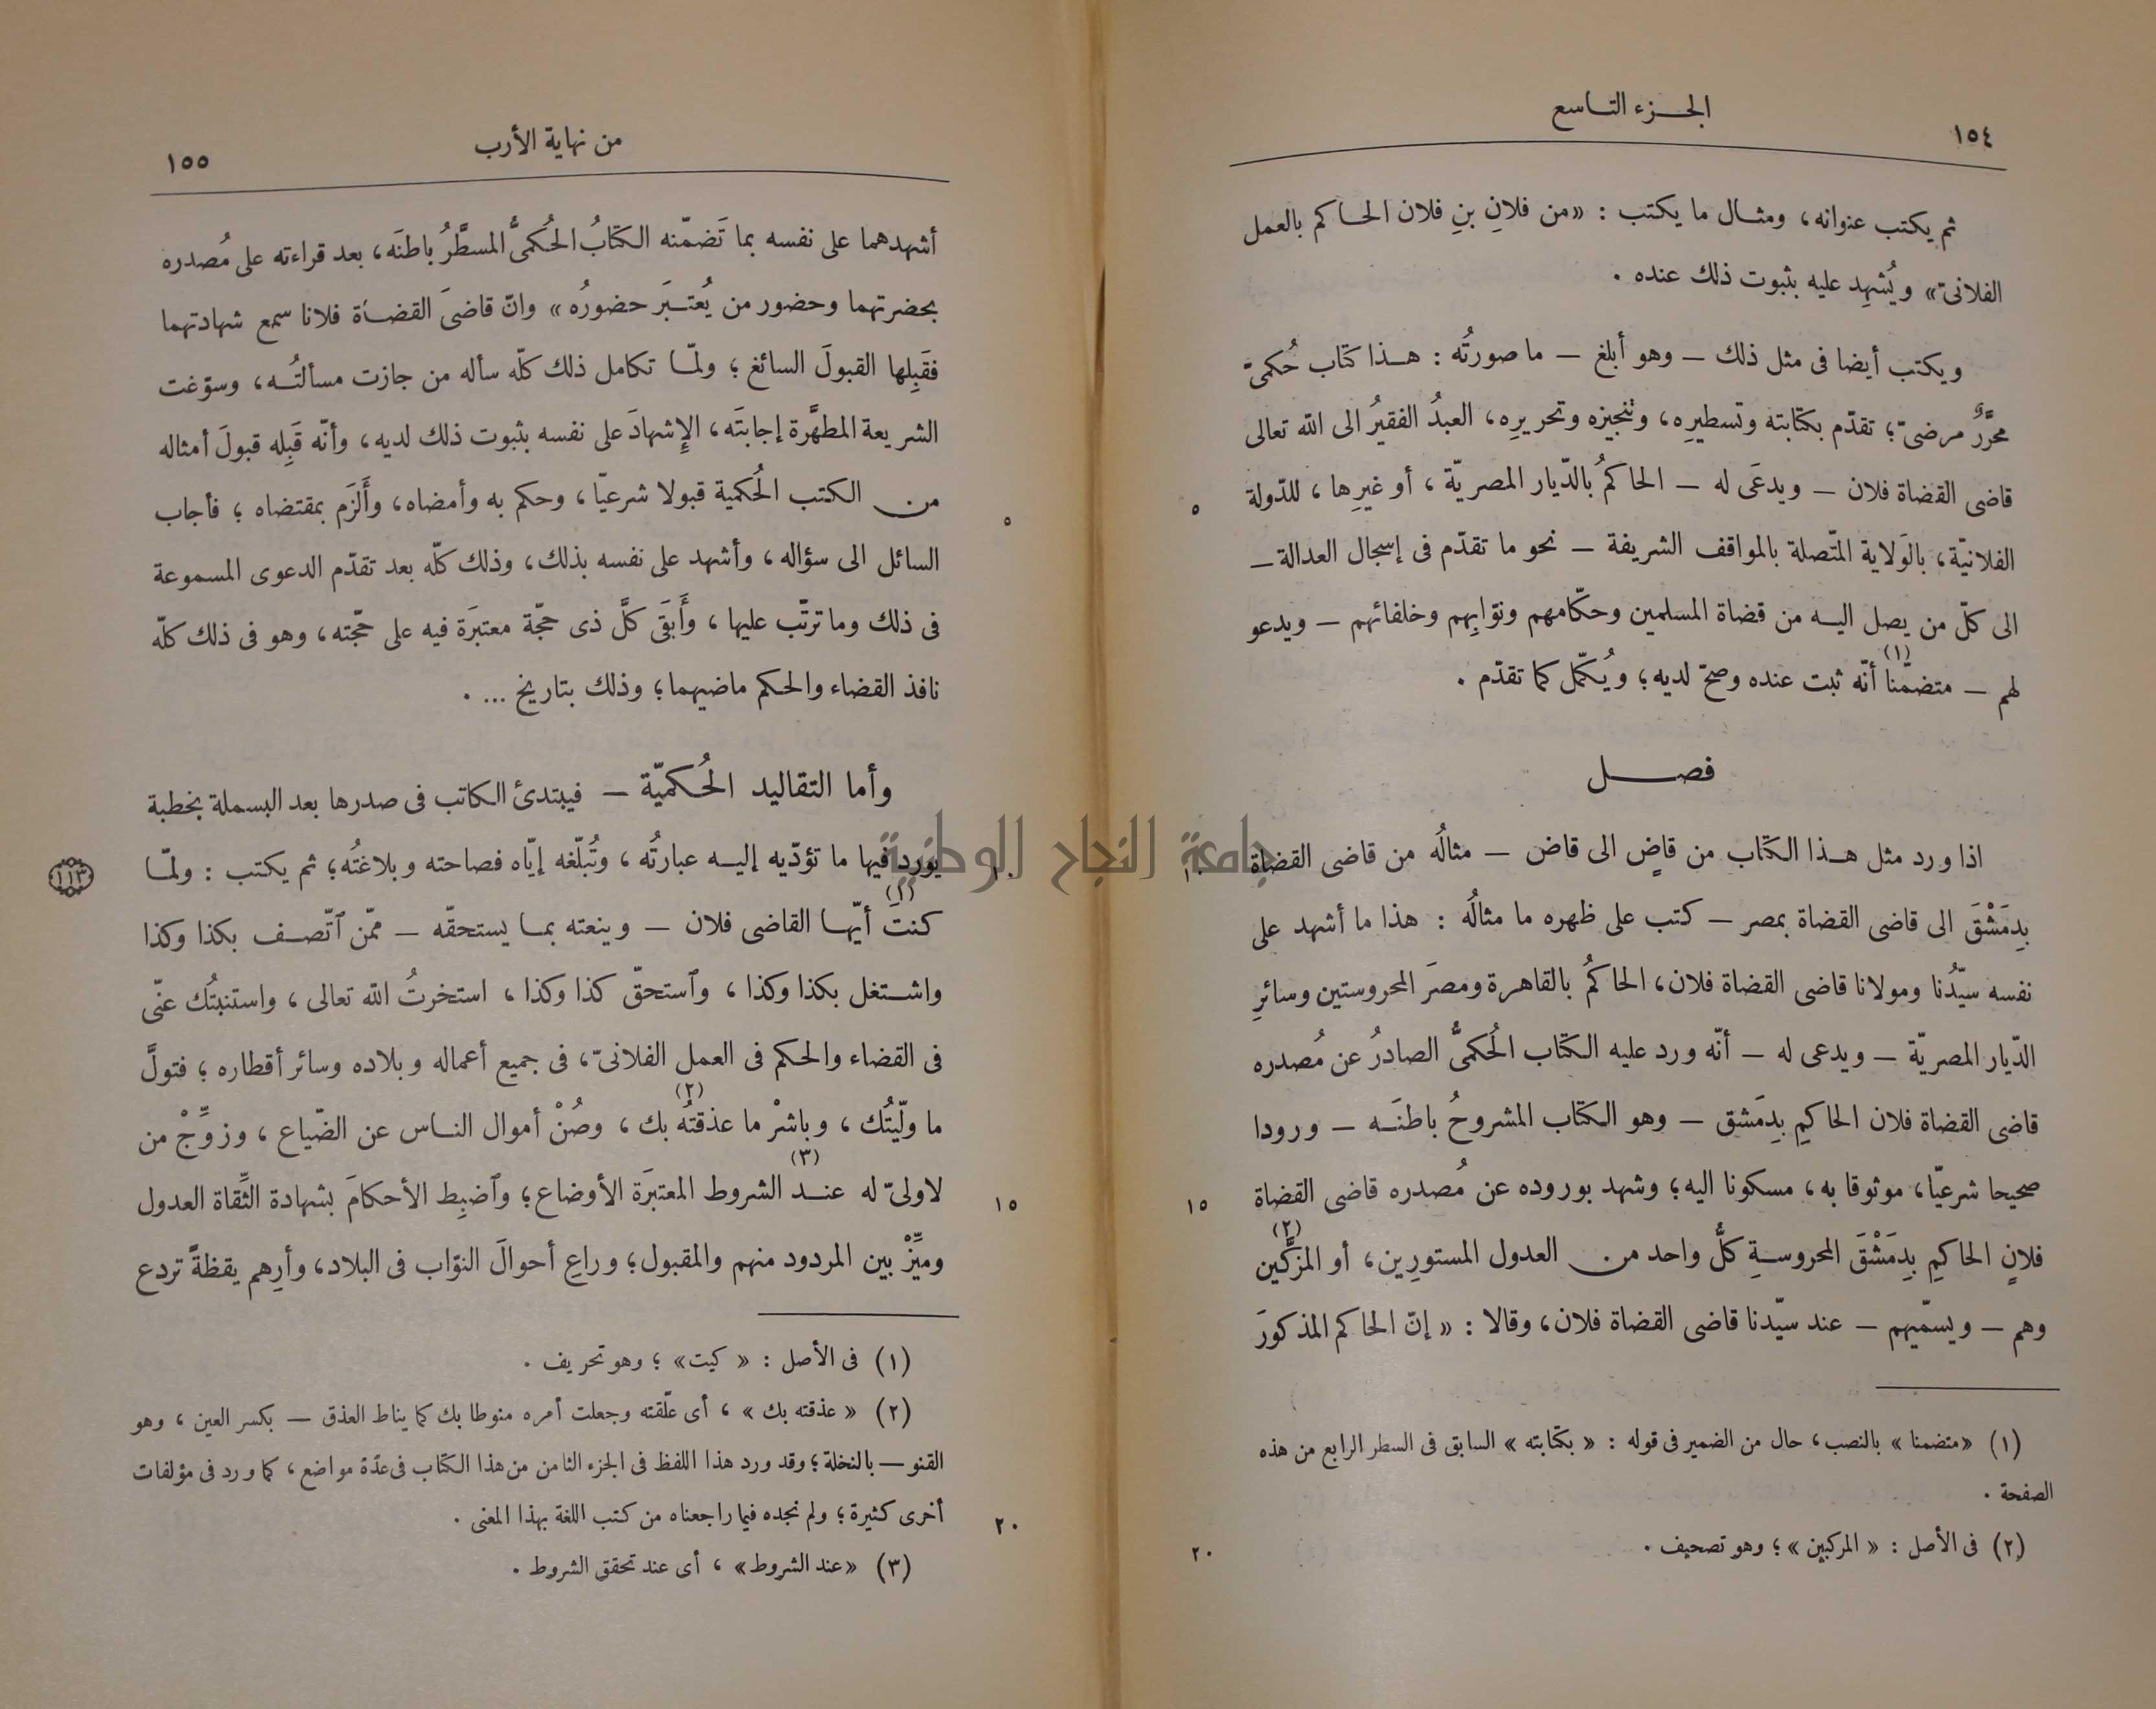 ١٥٤
الجـزء التـاسع
ثم يكتب عنوانه، ومثـال ما يكتب : «من فلانِ بنِ فلان الحـاكم بالعمل
الفلانىّ» ويُشهِد عليه بثبوت ذلك عنده .
ويكتب أيضا فى مثل ذلك — وهو أبلغ — ما صورتُه : هـذا كتاب حُكمىّ
محرَّرٌ مرضىّ؛ تقدّم بكتابته وتسطيرِه، وتنجيزه وتحريرِه، العبدُ الفقيرُ الى الله تعالى
قاضى القضاة فلان — ويدعَى له — الحاكمُ بالدّيار المصريّة ، أو غيرِها ، للدّولة
٥
الفلانيّة، بالوَلاية المتّصلة بالمواقف الشريفة — نحو ما تقدّم فى إسجال العدالة —
الى كلّ من يصل اليـه من قضاة المسلمين وحكّامهم ونوّابِهم وخلفائهم — ويدعو
لهم — متضمّنا(١) أنّه ثبت عنده وصحّ لديه؛ ويُكمّل كما تقدّم .
فصـل
اذا ورد مثل هـذا الكتاب من قاضٍ الى قاض — مثالُه من قاضى القضاة
١٠
بدِمَشْقَ الى قاضى القضاة بمصر — كتب على ظهره ما مثالُه : هذا ما أشهد على
نفسه سيّدُنا ومولانا قاضى القضاة فلان، الحاكمُ بالقاهرة ومصرَ المحروستين وسائرِ
الدّيار المصريّة — ويدعى له — أنّه ورد عليه الكتاب الحُكمىُّ الصادرُ عن مُصدره
قاضى القضاة فلان الحاكمِ بدِمَشق — وهو الكتاب المشروحُ باطنَـه — ورودا
صحيحا شرعيّا، موثوقا به، مسكونا اليه؛ وشهد بوروده عن مُصدره قاضى القضاة
١٥
فلانٍ الحاكمِ بدِمَشْقَ المحروسـةِ كلُّ واحد من العدول المستورِين، أو المزكَّين(٢)
وهم — ويسمّيهم — عند سيّدنا قاضى القضاة فلان، وقالا : « إنّ الحاكم المذكورَ
(١) «متضمنا» بالنصب، حال من الضمير فى قوله : « بكتابته » السابق فى السطر الرابع من هذه
الصفحة .
(٢) فى الأصل : « المركبين» ؛ وهو تصحيف .
٢٠
من نهاية الأرب
١٥٥
أشهدهما على نفسه بما تَضمّنه الكتابُ الحُكمىُّ المسطَّرُ باطنَه، بعد قراءته على مُصدره
بحضرتهما وحضور من يُعتـبَر حضورُه» وانّ قاضىَ القضـاة فلانا سمع شهادتهما
فقَبِلها القبولَ السائغ ؛ ولمّـا تكامل ذلك كلّه سأله من جازت مسألتُـه، وسوّغت
الشريعة المطهَّرة إجابتَه، الإِشهادَ على نفسه بثبوت ذلك لديه، وأنّه قَبِله قبولَ أمثاله
من الكتب الحُكمية قبولا شرعيّا، وحكم به وأمضاه، وأَلزَم بمقتضاه ؛ فأجاب
٥
السائل الى سؤاله ، وأشهد على نفسه بذلك، وذلك كلّه بعد تقدّم الدعوى المسموعة
فى ذلك وما ترتّب عليها ، وأَبقَى كلَّ ذى حجّة معتبَرة فيه على حجّته، وهو فى ذلك كلّه
نافذ القضاء والحكم ماضيهما؛ وذلك بتاريخ ... .
وأما التقاليد الحُكميّة — فيبتدئ الكاتب فى صدرها بعد البسملة بخطبة
يورد فيها ما تؤدّيه إليـه عبارتُه ، وتُبلّغه إيّاه فصاحته وبلاغتُه؛ ثم يكتب : ولمّـا
١٠
١١٣
كنتَ(١) أيّهـا القاضى فلان — وينعته بمـا يستحقّه — ممّن ٱتّصـف بكذا وكذا
واشـتغل بكذا وكذا ، وٱستحقّ كذا وكذا ، استخرتُ الله تعالى ، واستنبتُك عنّى
فى القضاء والحكم فى العمل الفلانىّ، فى جميع أعماله وبلاده وسائر أقطاره ؛ فتولَّ
ما ولّيتُك ، وباشرْ ما عذقتهُ(٢) بك ، وصُنْ أموال النـاس عن الضّياع ، وزوِّجْ من
لا ولىّ له عنـد(٣) الشروط المعتبَرة الأوضاع؛ وٱضبِط الأحكامَ بشهادة الثِّقاة العدول
١٥
وميِّزْ بين المردود منهم والمقبول؛ وراعِ أحوالَ النوّاب فى البلاد، وأرِهم يقظةً تردع
(١) فى الأصل : « كيت» ؛ وهو تحريف .
(٢) « عذقته بك » ، أى علّقته وجعلت أمره منوطا بك كما يناط العذق — بكسر العين ، وهو
القنو — بالنخلة ؛ وقد ورد هذا اللفظ فى الجزء الثامن من هذا الكتاب فى عدّة مواضع ، كما ورد فى مؤلفات
أخرى كثيرة ؛ ولم نجده فيما راجعناه من كتب اللغة بهذا المعنى .
٢٠
(٣) «عند الشروط» ، أى عند تحقق الشروط .
جامعة النجاح الوطنية